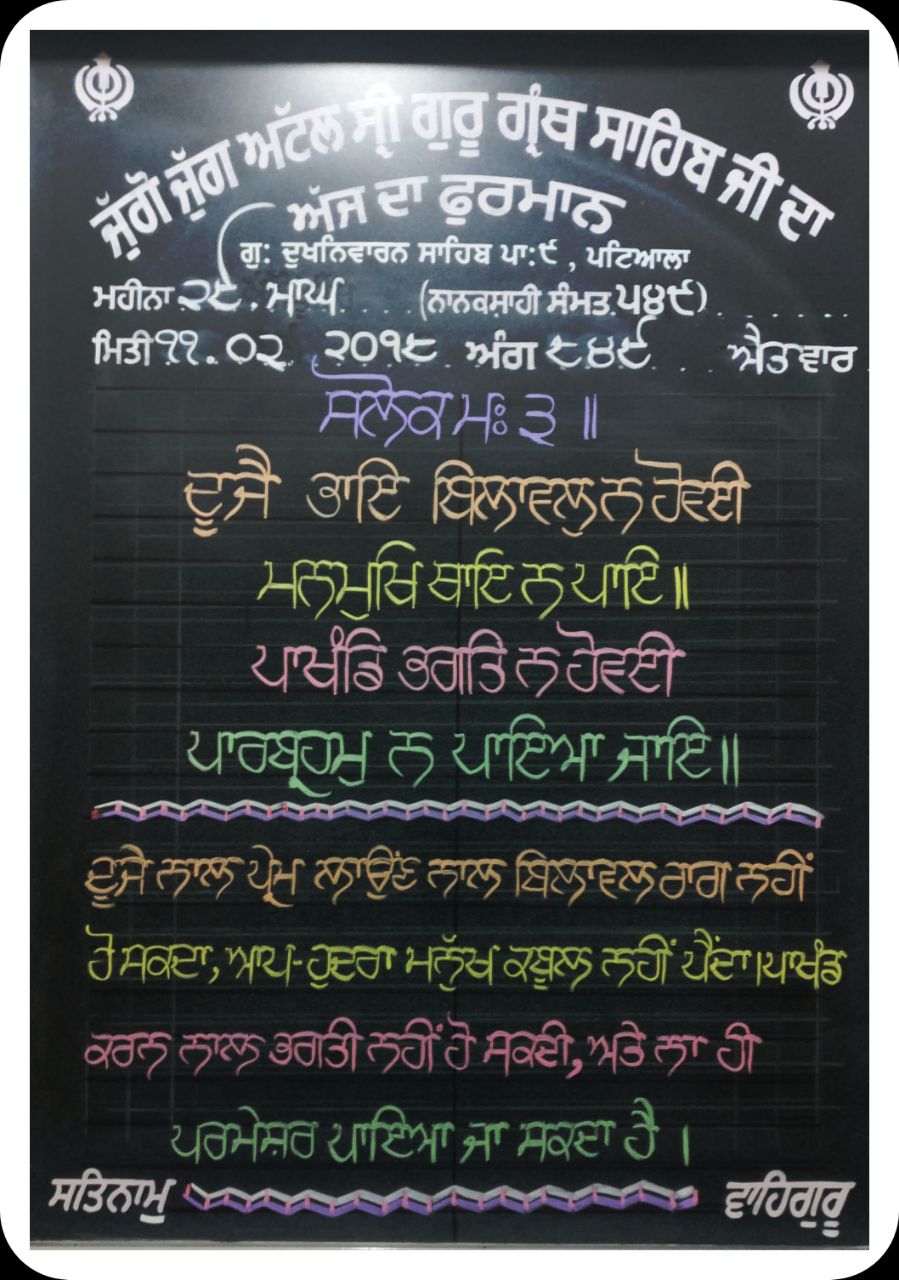 ਜੁੱਗੋ ਜੁੱਗ ਅਟੱਲ ਸ੍ਰੀ ਗੁਰੂ ਗ੍ਰੰਥ ਸਾਹਿਬ ਜੀ ਦਾ
ਅੱਜ ਦਾ ਫੁਰਮਾਨ
ਗੁ: ਦੁਖਨਿਵਾਰਨ ਸਾਹਿਬ ਪਾ:੯, ਪਟਿਆਲਾ
ਮਹੀਨਾ ੨੯. ਮਾਘ (ਨਾਨਕਸ਼ਾਹੀ ਸੰਮਤ ੫੪੯)
ਮਿਤੀ ੧੧.੦੨ ੨੦੧੮ ਅੰਗ ੮੪੯ ਐਤਵਾਰ
ਸਲੋਕ ਮਃ ੩ ॥
ਦੂਜੈ ਭਾਇ ਬਿਲਾਵਲੁ ਨ ਹੋਵਈ
ਮਨਮੁਖਿ ਥਾਇ ਨ ਪਾਇ॥
ਪਾਖੰਡਿ ਭਗਤਿ ਨ ਹੋਵਈ
ਪਾਰਬ੍ਰਹਮੁ ਨ ਪਾਇਆ ਜਾਇ॥
ਦੂਜੈ ਨਾਲ ਪ੍ਰੇਮ ਲਾਉਂਣ ਨਾਲ ਬਿਲਾਵਲ ਰਾਗ ਨਹੀਂ
ਹੋ ਸਕਦਾ, ਆਪ-ਹੁਦਰਾ ਮਨੁੱਖ ਕਬੂਲ ਨਹੀਂ ਪੈਂਦਾ।ਪਾਖੰਡ
ਕਰਨ ਨਾਲ ਭਗਤੀ ਨਹੀਂ ਹੋ ਸਕਦੀ, ਅਤੇ ਨਾ ਹੀ
ਪਰਮੇਸ਼ਰ ਪਾਇਆ ਜਾ ਸਕਦਾ ਹੈ ।
ਸਤਿਨਾਮੁ ਵਾਹਿਗੁਰੂ